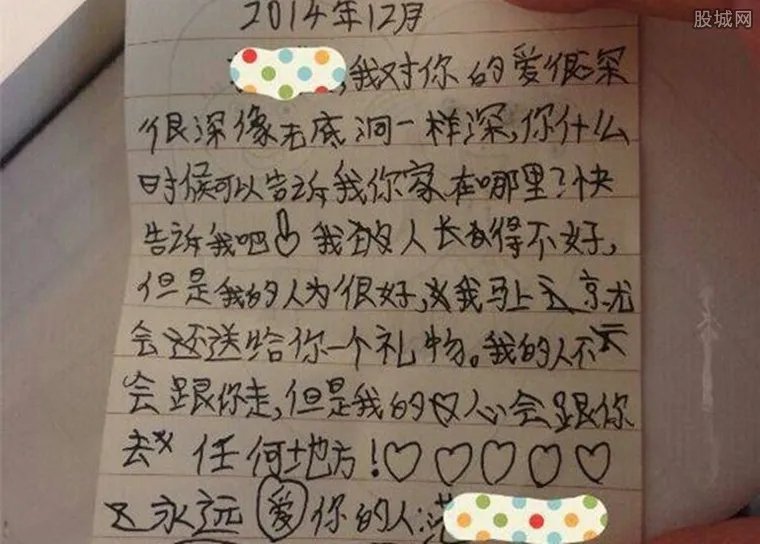 股城网
2014年12月
,我对你的爱很深
很深像无底洞一样深,你什么
时候可以告诉我你家在哪里?快
告诉我吧 我的人长得不好,
但是我的人为很好,我马上就
会还送给你一个礼物。我的人不
会跟你走,但是我的心会跟你
去任何地方!♡♡♡♡♡
永远爱你的人: